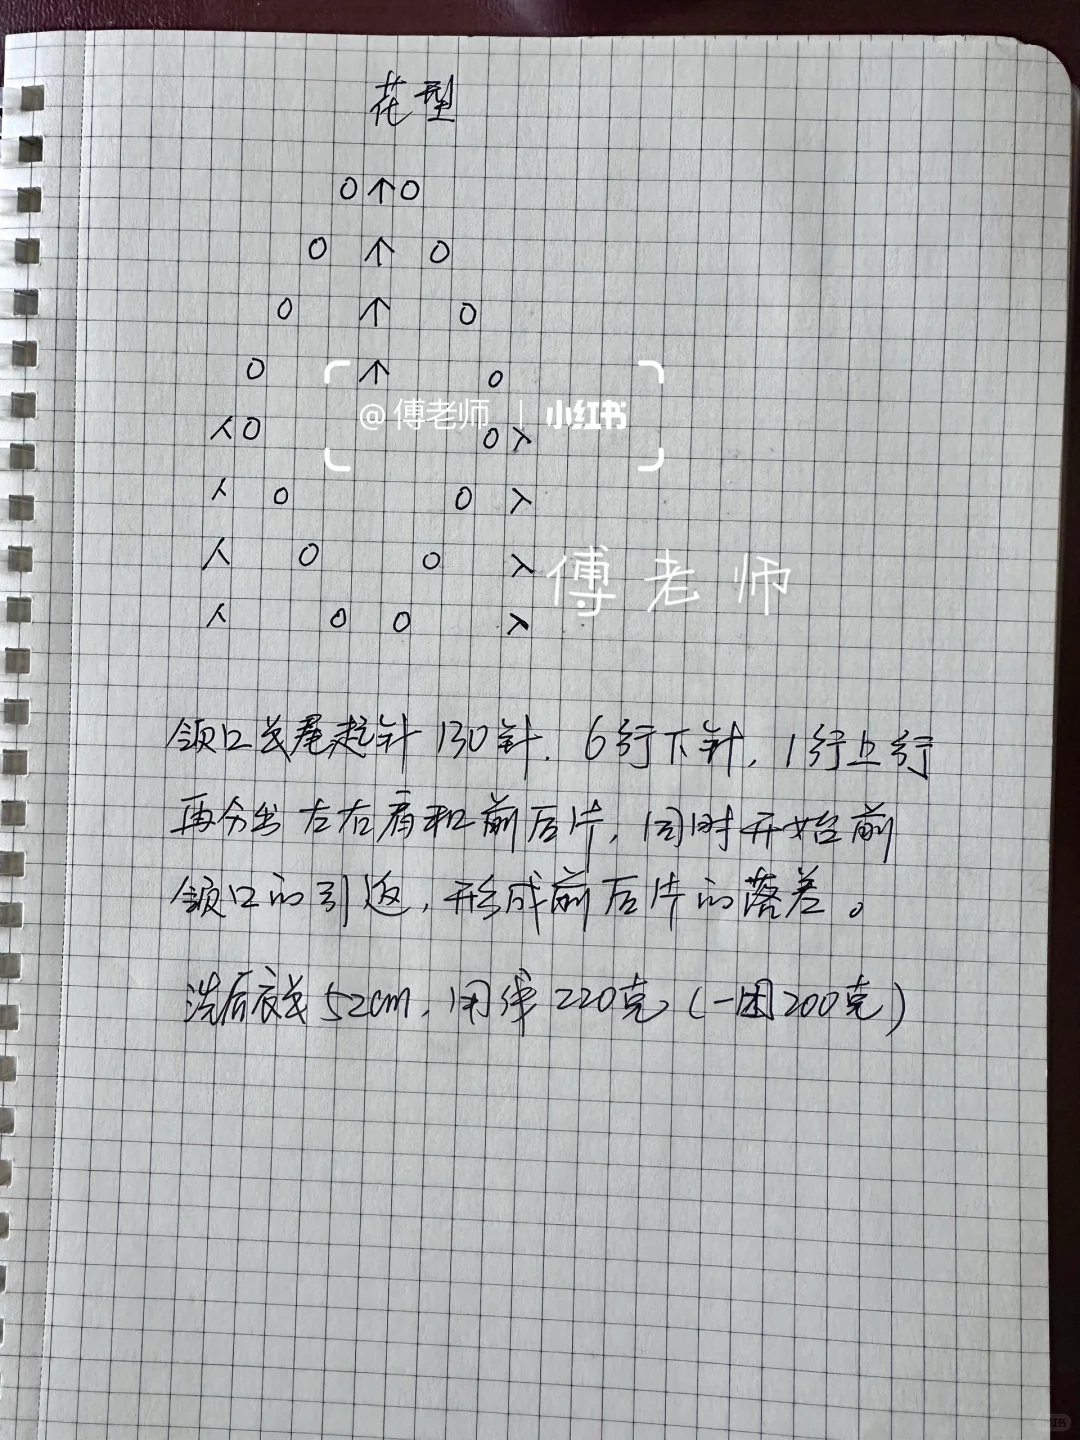 花型
O↑O
O ↑ O
O ↑ O
O ↑ O
@傅老师 | 小红书
人O O入
人 O O 入
人 O O 入
傅老师
人 O O 入
领口长尾起针130针. 6行下针, 1行上行
再分出左右肩和前后片, 同时开始前
领口的引返, 形成前后片的落差。
洗后衣长52cm, 用线220克(一团200克)